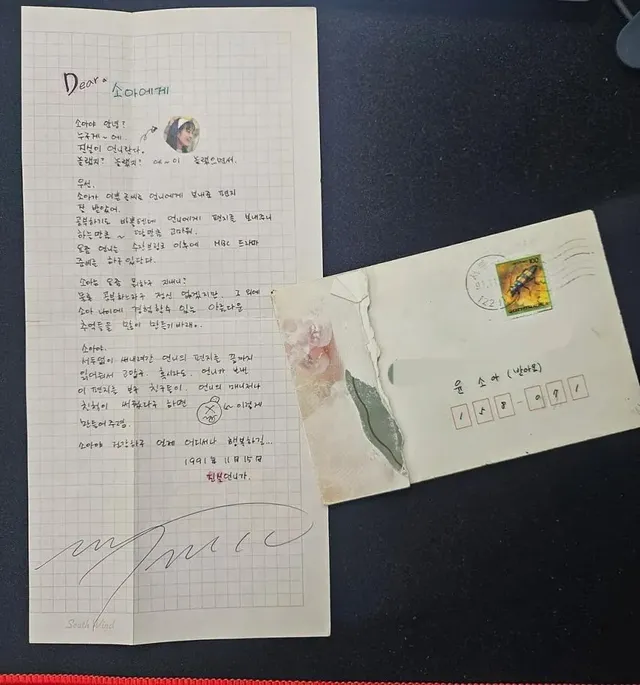 Dear.
소아에게
소아야 안녕?
누구게~ 예
진실이 언니란다.
놀랬지? 놀랬지? 에~이 놀랬으면서.
우선,
소아가 이쁜 글씨로 언니에게 보내준 편지
잘 받았어.
공부하기도 바쁠텐데 언니에게 편지를 보내주니
하늘만큼 ~ 땅만큼 고마워.
요즘 언니는 수잔브링크 이후에 MBC 드라마
준비를 하구 있단다.
소아는 요즘 뭐하구 지내니?
물론 공부하느라구 정신 없겠지만 그 외에
소아 나이에 경험할수 있는 아름다운
추억들을 많이 만들기 바래.
소아야.
두서없이 써내려간 언니의 편지를 끝까지
읽어줘서 고맙구, 혹시라도 언니가 보낸
이 편지를 보구 친구들이 언니의 매니저나
친척이 써줬다구 하면 이렇게
만들어주렴.
소아야 건강하구 언제 어디서나 행복하길...
1991年 11月 15日
진실언니가.
South Wind
윤 소아 (받아요)
158-071